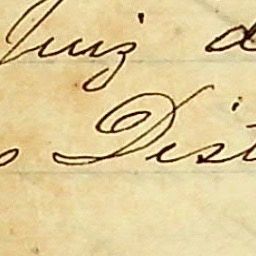 Juiz d
o Dist